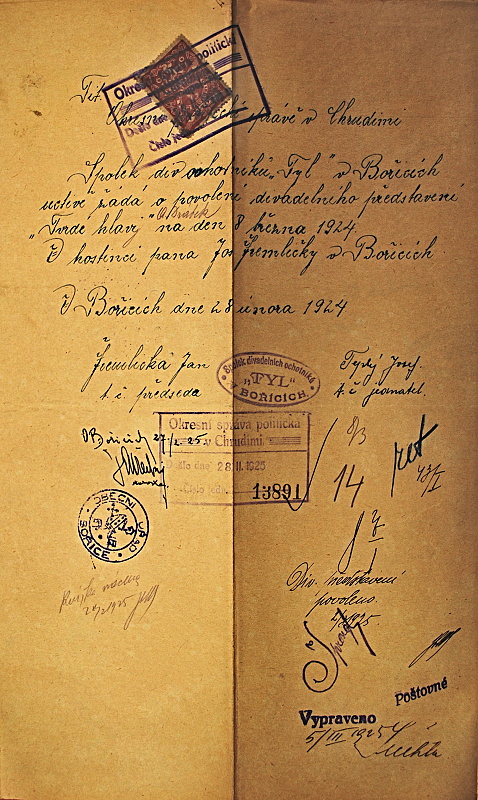 Okresní politická
Došlo dne
Číslo je
Tit.
Okresní správě v Chrudimi
Spolek div. ochotníků „Tyl" v Bořicích
uctivě žádá o povolení divadelního představení
„Tvrdé hlavy" na den 8 března 1924.
V hostinci pana Jos. Jremličky v Bořicích.
V Bořicích dne 28 února 1924
Jremlička Jan
t. č. předseda
Spolek divadelních ochotníků
„TYL"
V BOŘICÍCH.
Josef
t. č. jednatel.
V Bořicích 27/2. 25.
Okresní správa politická
v Chrudimi.
Došlo dne 28. II. 1925
Číslo jedn. 13891
8/3
14
OBECNÍ ÚŘAD
BOŘICE
Div. představení
povoleno.
Poštovné
Vypraveno
5/III 1925